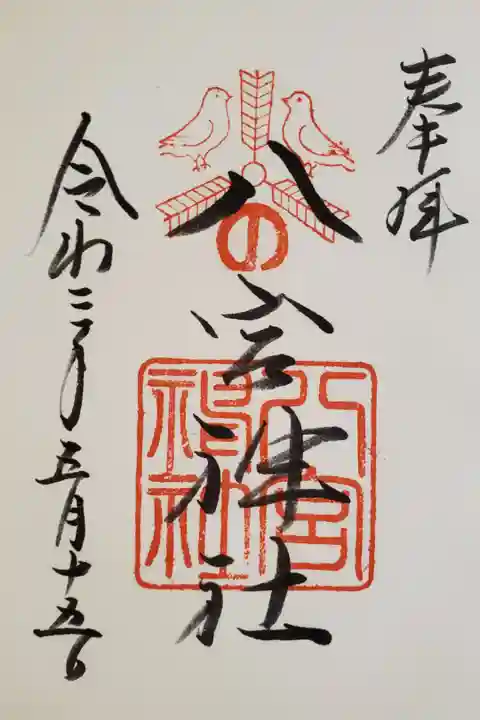 奉拝
八の宮神社
八宮
神社
令和三年五月十五日